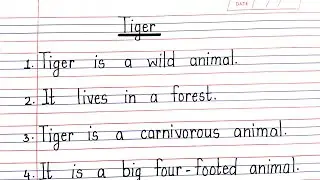 DATE
Tiger
1. Tiger is a wild animal.
2. It lives in a forest.
3. Tiger is a carnivorous animal.
4. It is a big four-footed animal.